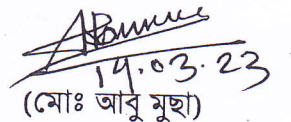 14.03.23
(মোঃ আবু মুছা)